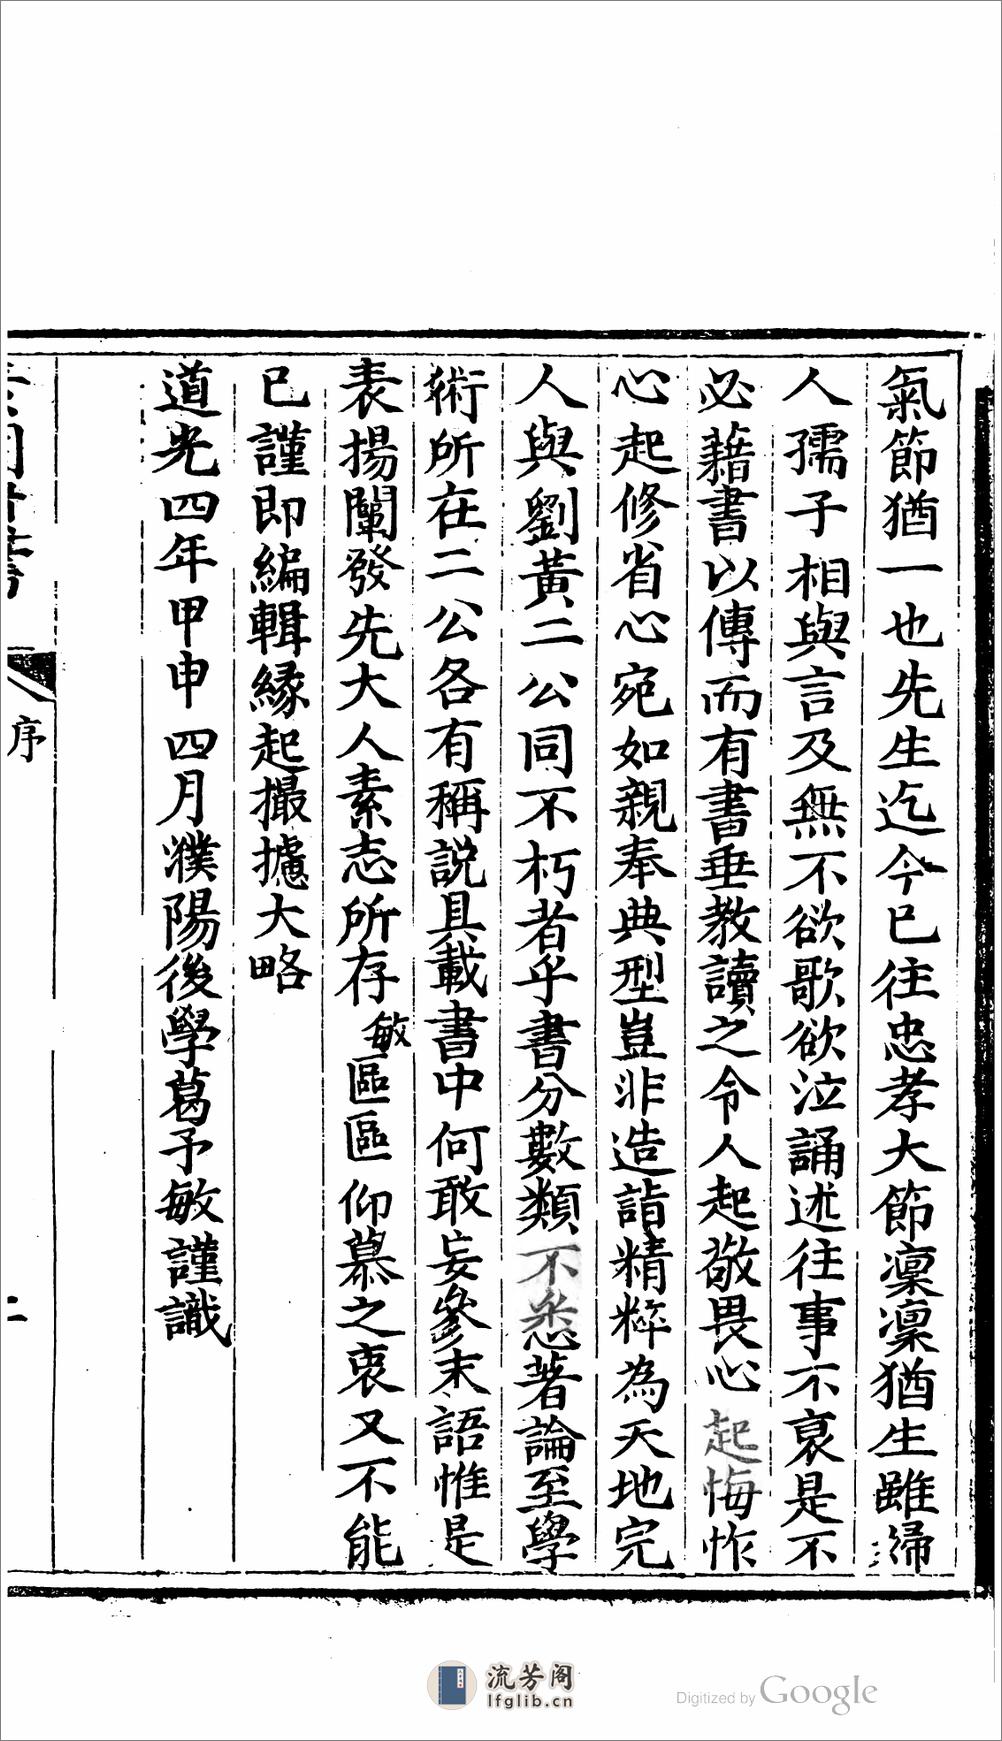 氣節猶一也先生迄今已往忠孝大節凜凜猶生雖婦
人孺子相與言及無不欲歌欲泣誦述往事不衰是不
必藉書以傳而有書垂教讀之令人起敬畏心起悔怍
心起修省心宛如親奉典型豈非造詣精粹為天地完
人與劉黃二公同不朽者乎書分數類不悉著論至學
術所在二公各有稱說具載書中何敢妄參末語惟是
表揚闡發先大人素志所存敏區區仰慕之衷又不能
已謹即編輯緣起撮攄大略
道光四年甲申四月濮陽後學葛予敏謹識
序
流芳阁
lfglib.cn
Digitized by Google